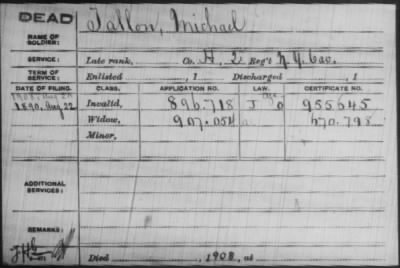 DEAD
NAME OF SOLDIER: Fallon, Michael
SERVICE: Late rank, Co. H, 2 Reg't N.Y. Cav.
TERM OF SERVICE: Enlisted , 1 Discharged , 1
DATE OF FILING. CLASS. APPLICATION NO. LAW. CERTIFICATE NO.
1890, Aug 22 Invalid, 896.718 J 955645
Widow, 907.054 670.798
Minor,
ADDITIONAL SERVICES:
REMARKS:
Died , 1908, at